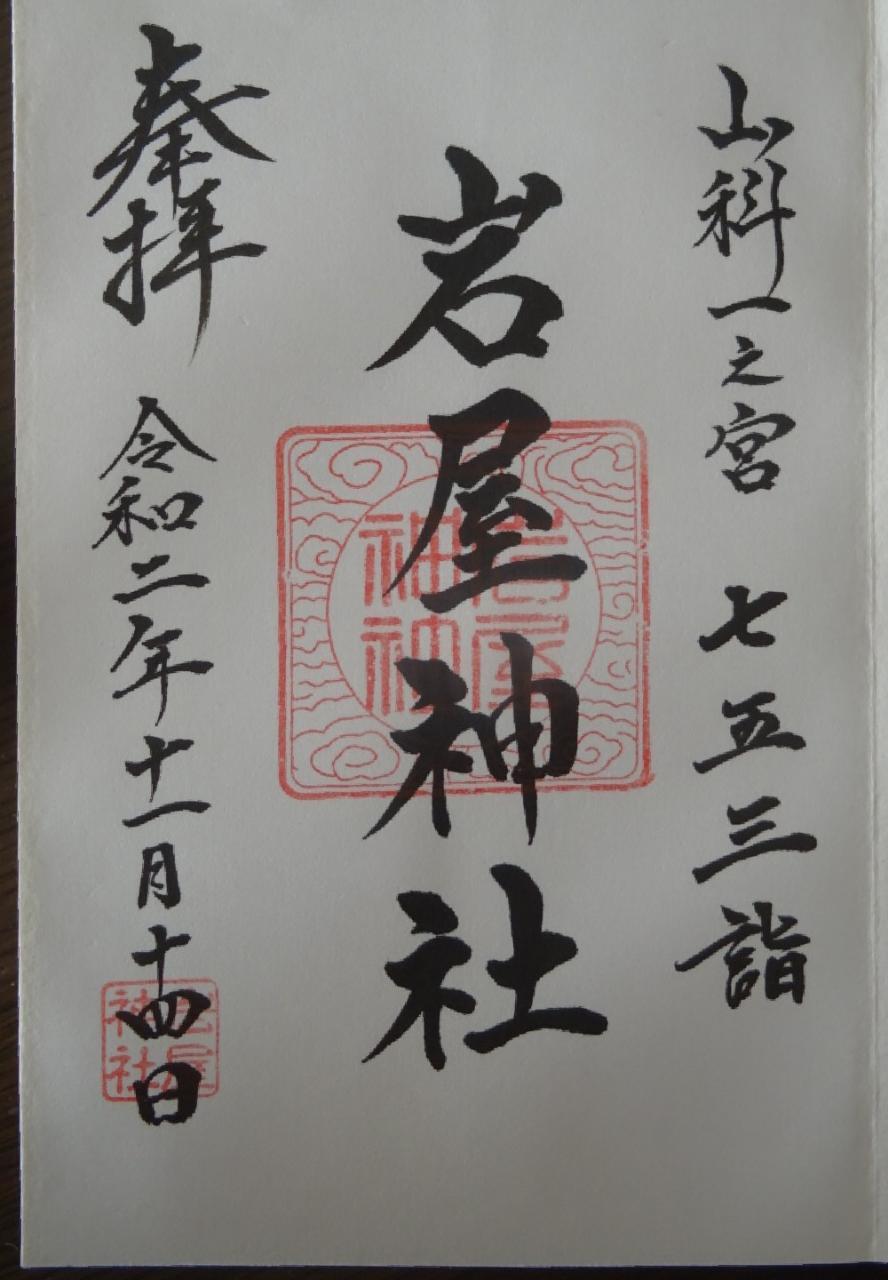 山科一之宮 七五三詣
岩屋神社
奉拝 令和二年十一月十四日
岩屋
神社